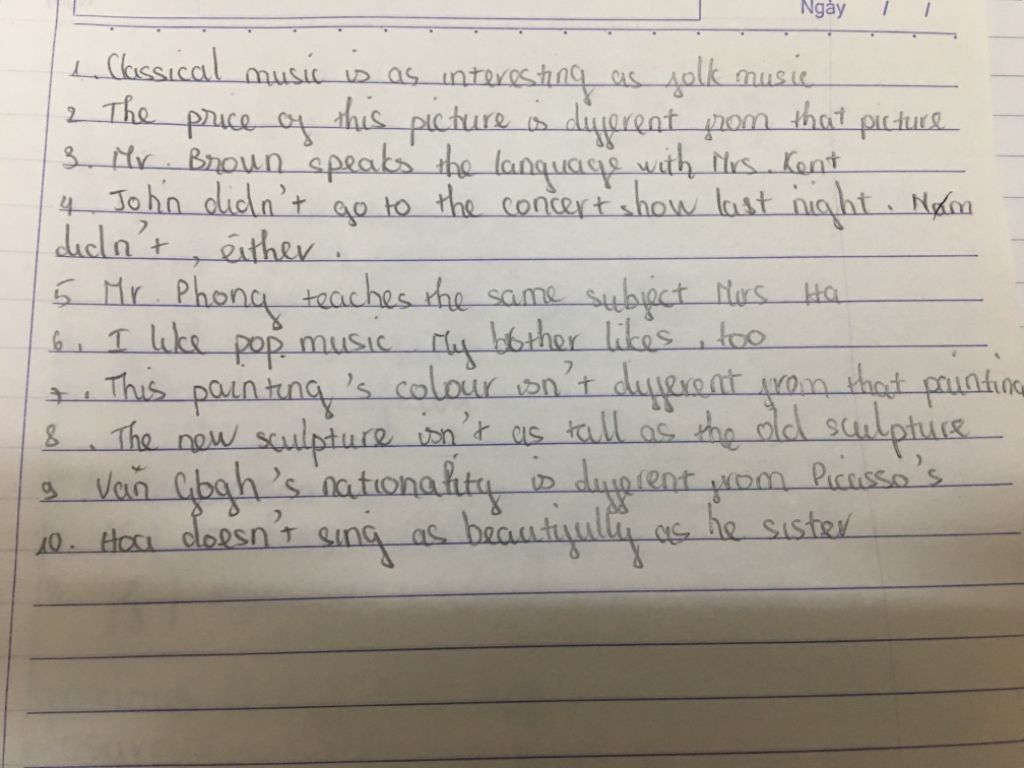 Ngày / /
1. Classical music is as interesting as folk music
2 The price of this picture is different from that picture
3. Mr. Broun speaks the language with Mrs. Kent
4 John didn't go to the concert show last night. Nam
didn't, either.
5 Mr. Phong teaches the same subject Mrs Ha
6. I like pop music My bother likes, too
7. This painting's colour isn't different from that painting
8. The new sculpture isn't as tall as the old sculpture
9 Văn Gogh's nationality is different from Picasso's
10. Hoa doesn't sing as beautifully as he sister